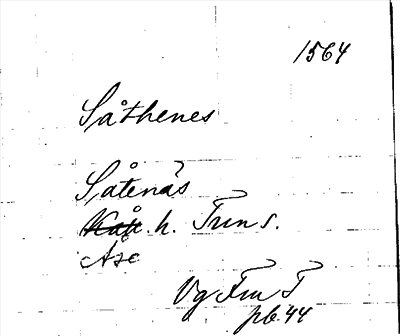 1564
Såthenes
Såtenäs
h. Tun s.
Åse
Vg Fru T
pb. 44